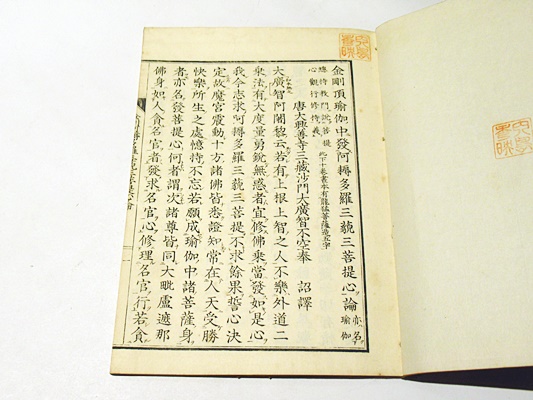 金剛頂瑜伽中發阿耨多羅三藐三菩提心論亦名瑜伽
總持教門說菩提心觀行修持義
唐大興善寺三藏沙門大廣智不空奉　詔譯
大廣智阿闍黎云若有上根上智之人不樂外道二
乘法有大度量勇銳無惑者宜修佛乘當發如是心
我今志求阿耨多羅三藐三菩提不求餘果誓心決
定故魔宮震動十方諸佛皆悉證知常在人天受勝
快樂所生之處憶持不忘若願成瑜伽中諸菩薩身
者亦名發菩提心何者謂次諸尊皆同大毗盧遮那
佛身如人貪名官者發求名官心修理名官行若貪